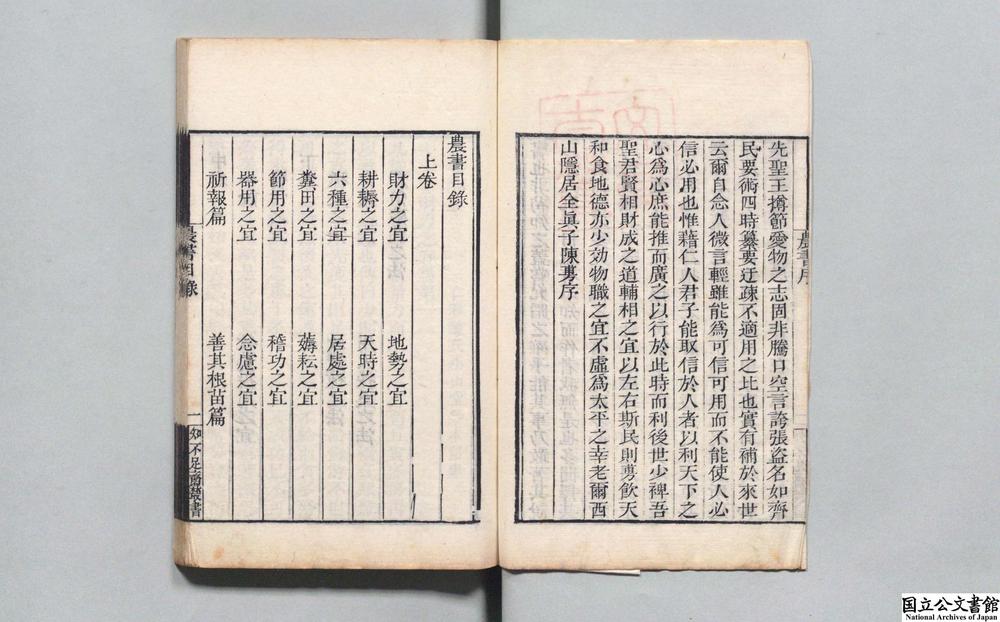 先聖王撙節愛物之志固非騰口空言誇張盜名如齊
民要術四時纂要迂疎不適用之比也實有補於來世
云爾自念人微言輕雖能爲可信可用而不能使人必
信必用也惟藉仁人君子能取信於人者以利天下之
心爲心庶能推而廣之以行於此時而利後世少裨吾
聖君賢相財成之道輔相之宜以左右斯民則旉飲天
和食地德亦少効物職之宜不虛爲太平之幸老爾西
山隱居全眞子陳旉序
農書序
農書目錄
上卷
財力之宜 地勢之宜
耕耨之宜 天時之宜
六種之宜 居處之宜
糞田之宜 薅耘之宜
節用之宜 稽功之宜
器用之宜 念慮之宜
祈報篇 善其根苗篇
農書目錄 一 知不足齋叢書
国立公文書館
National Archives of Japan